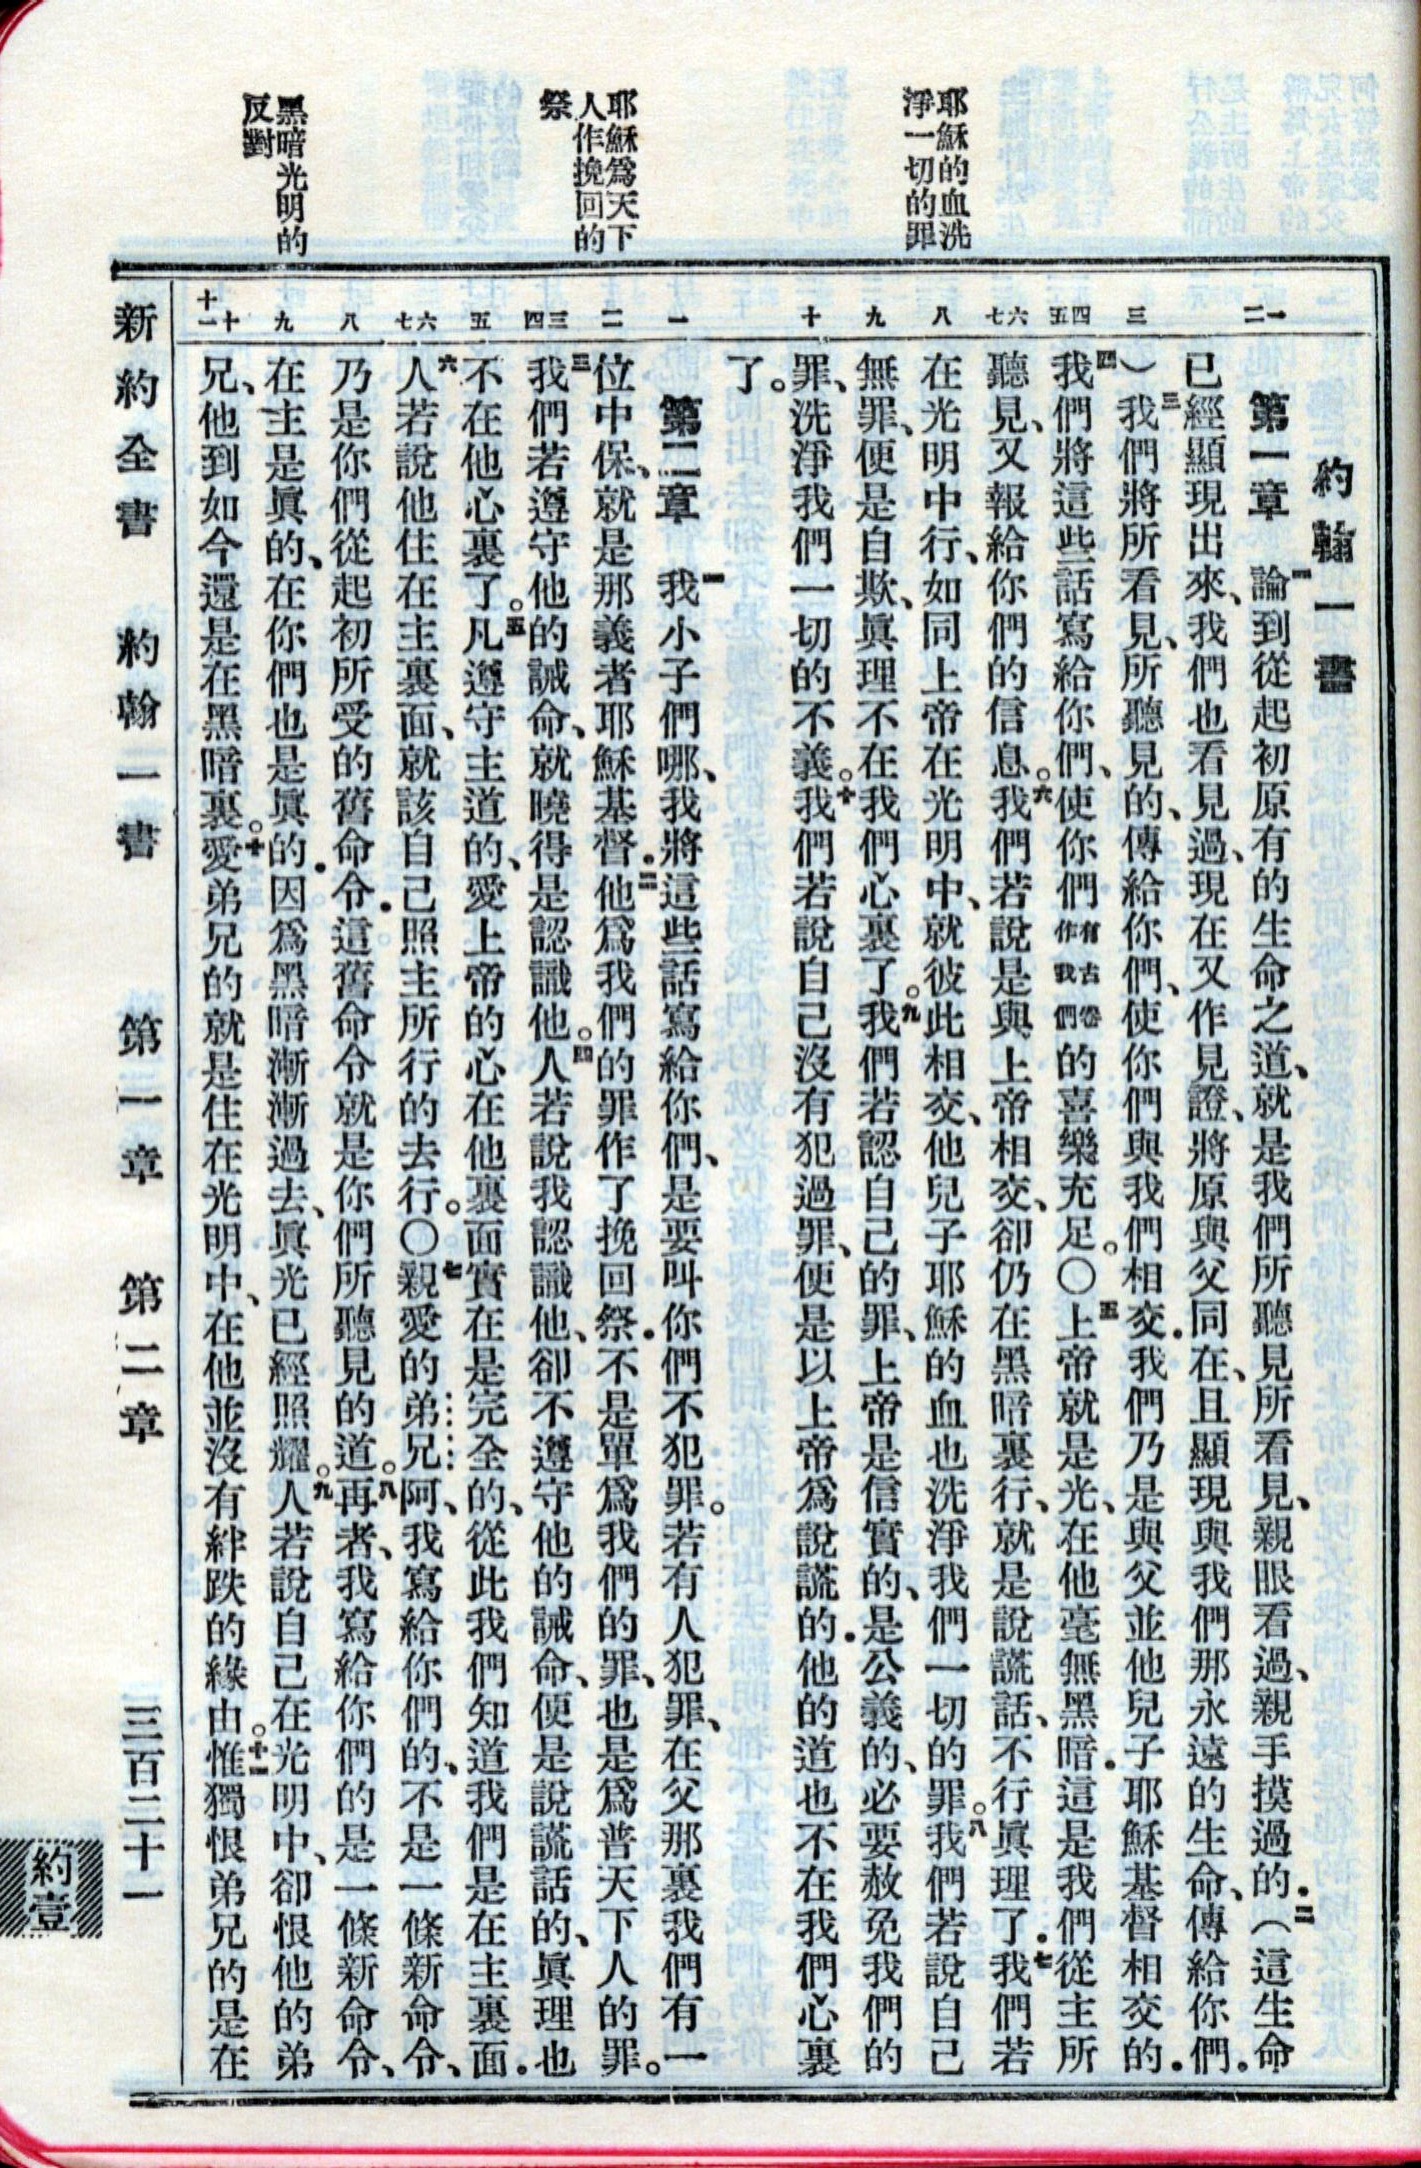 耶穌的血洗
淨一切的罪
耶穌爲天下
人作挽回的
祭
黑暗光明的
反對
約翰一書
一二
三
四五
六七
八
九
十
一
二
三四
五
六七
八
九
十十一
第一章 一論到從起初原有的生命之道、就是我們所聽見所看見、親眼看過、親手摸過的．二（這生命
已經顯現出來、我們也看見過、現在又作見證、將原與父同在、且顯現與我們那永遠的生命、傳給你們．
）三我們將所看見、所聽見的、傳給你們、使你們與我們相交．我們乃是與父並他兒子耶穌基督相交的．
四我們將這些話寫給你們、使你們有古卷作我們的喜樂充足。〇五上帝就是光、在他毫無黑暗．這是我們從主所
聽見、又報給你們的信息。六我們若說是與上帝相交、卻仍在黑暗裏行、就是說謊話、不行眞理了．七我們若
在光明中行、如同上帝在光明中、就彼此相交、他兒子耶穌的血也洗淨我們一切的罪。八我們若說自己
無罪、便是自欺、眞理不在我們心裏了。九我們若認自己的罪、上帝是信實的、是公義的、必要赦免我們的
罪、洗淨我們一切的不義。十我們若說自己沒有犯過罪、便是以上帝爲說謊的．他的道也不在我們心裏
了。
第二章 一我小子們哪、我將這些話寫給你們、是要叫你們不犯罪。若有人犯罪、在父那裏我們有一
位中保、就是那義者耶穌基督．二他爲我們的罪作了挽回祭．不是單爲我們的罪、也是爲普天下人的罪。
三我們若遵守他的誡命、就曉得是認識他。四人若說我認識他、卻不遵守他的誡命、便是說謊話的、眞理也
不在他心裏了。五凡遵守主道的、愛上帝的心在他裏面實在是完全的、從此我們知道我們是在主裏面．
六人若說他住在主裏面、就該自己照主所行的去行。〇七親愛的弟兄阿、我寫給你們的、不是一條新命令、
乃是你們從起初所受的舊命令．這舊命令就是你們所聽見的道。八再者、我寫給你們的是一條新命令、
在主是眞的、在你們也是眞的．因爲黑暗漸漸過去、眞光已經照耀。九人若說自己在光明中、卻恨他的弟
兄、他到如今還是在黑暗裏。十愛弟兄的就是住在光明中、在他並沒有絆跌的緣由。十一惟獨恨弟兄的是在
新約全書 約翰一書 第一章 第二章 三百二十一
約壹